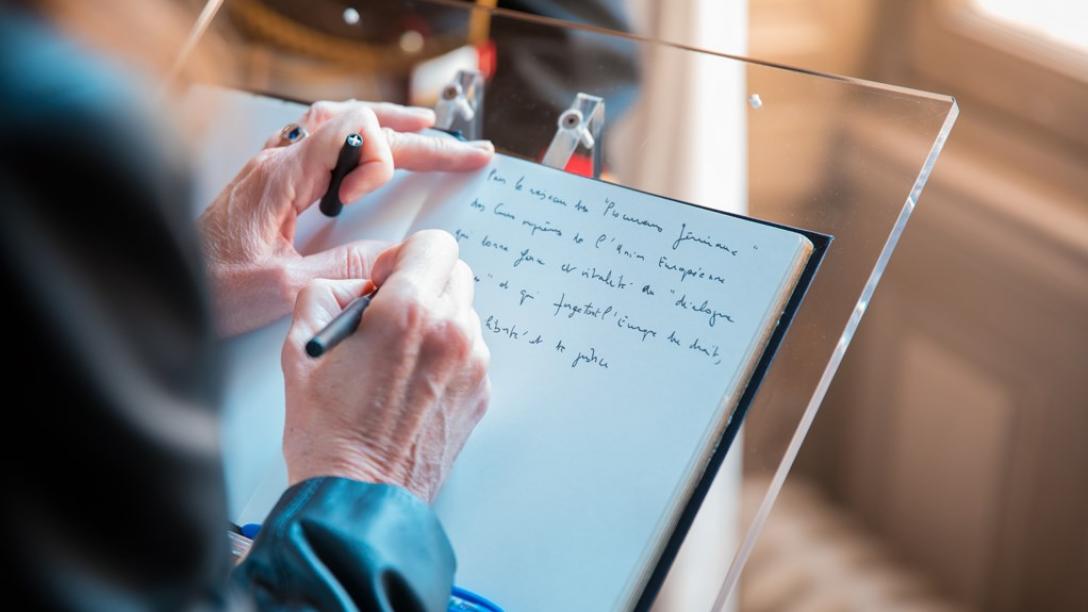 Pour le réseau des "
des Cours suprêmes de l'Union Européenne
qui donne force et vitalité au "dialogue
" et qui l'Europe du droit,
liberté et de justice